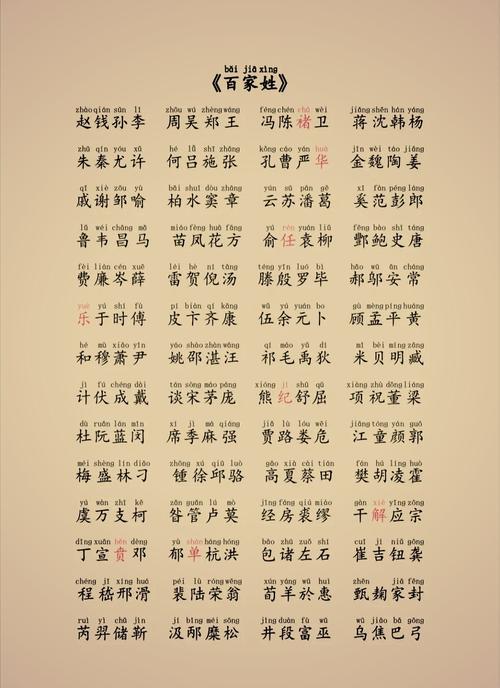 bǎi jiā xìng
《百家姓》
zhào qián sūn lǐ zhōu wú zhèng wáng féng chén chǔ wèi jiǎng shěn hán yáng
赵钱孙李 周吴郑王 冯陈褚卫 蒋沈韩杨
zhū qín yóu xǔ hé lǚ shī zhāng kǒng cáo yán huà jīn wèi táo jiāng
朱秦尤许 何吕施张 孔曹严华 金魏陶姜
qī xiè zōu yù bǎi shuǐ dòu zhāng yún sū pān gě xī fàn péng láng
戚谢邹喻 柏水窦章 云苏潘葛 奚范彭郎
lǔ wéi chāng mǎ miáo fèng huā fāng yú rén yuán liǔ fēng bào shǐ táng
鲁韦昌马 苗凤花方 俞任袁柳 酆鲍史唐
fèi lián cén xuē léi hè ní tāng téng yīn luó bì hǎo wū ān cháng
费廉岑薛 雷贺倪汤 滕殷罗毕 郝邬安常
yuè yú shí fù pí biàn qí kāng wǔ yú yuán bǔ gù mèng píng huáng
乐于时傅 皮卞齐康 伍余元卜 顾孟平黄
hé mù xiāo yǐn yáo shào zhàn wāng qí máo yǔ dí mǐ bèi míng zāng
和穆萧尹 姚邵湛汪 祁毛禹狄 米贝明臧
jì fú chéng dài tán sòng máo páng xióng jǐ shū qū xiàng zhù dǒng liáng
计伏成戴 谈宋茅庞 熊纪舒屈 项祝董梁
dù ruǎn lán mǐn xí jì má qiáng jiǎ lù lóu wēi jiāng tóng yán guō
杜阮蓝闵 席季麻强 贾路娄危 江童颜郭
méi shèng lín diāo zhōng xú qiū luò gāo xià cài tián fán hú líng huò
梅盛林刁 锺徐邱骆 高夏蔡田 樊胡凌霍
yú wàn zhī kē zǎn guǎn lú mò jīng fáng qiú miào gān xiè yīng zōng
虞万支柯 昝管卢莫 经房裘缪 干解应宗
dīng xuān bēn dèng yù shàn háng hóng bāo zhū zuǒ shí cuī jí niǔ gōng
丁宣贲邓 郁单杭洪 包诸左石 崔吉钮龚
chéng jī xíng huá péi lù róng wēng xún yáng yū huì zhēn qú jiā fēng
程嵇邢滑 裴陆荣翁 荀羊於惠 甄麴家封
ruì yì chǔ jìn jí bǐng mí sōng jǐng duàn fù wū wū jiāo bā gōng
芮羿储靳 汲邴糜松 井段富巫 乌焦巴弓